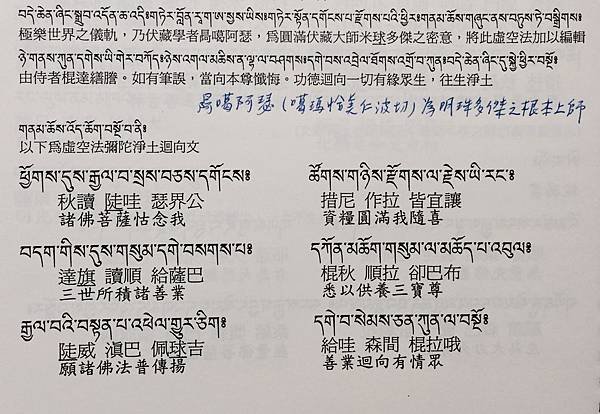 བདེ་ཆེན་ཞིང་སྒྲུབ་འདོན་ཆ་འདི༔ གཏེར་བློན་རཱ་ག་ཨ་སྱས་ཡིས༔ གཏེར་སྟོན་དགོངས་པ་རྫོགས་པའི་ཕྱིར༔ གནམ་ཆོས་གཞུང་ནས་བཏུས་ཏེ་བསྒྲིགས༔
極樂世界之儀軌，乃伏藏學者局噶阿瑟，為圓滿伏藏大師米球多傑之密意，將此虛空法加以編輯
ཉེ་གནས་ཀུན་དགས་ཡི་གེར་བཀོད༔ ཉེས་འགལ་མཆིས་ན་ལྷ་ལ་བཤགས༔ དགེ་བས་འབྲེལ་ཐོགས་འགྲོ་བ་ཀུན༔ བདེ་ཆེན་ཞིང་དུ་སྐྱེ་ཕྱིར་བསྔོ༔
由侍者棍達繕謄。如有筆誤，當向本尊懺悔。功德迴向一切有緣眾生，往生淨土
局噶阿瑟(噶瑪恰美仁波切)為明珠多傑之根本上師
གནམ་ཆོས་འོད་ཆོག་བསྔོ་བ་ནི༔
以下為虛空法彌陀淨土迴向文
ཕྱོགས་དུས་རྒྱལ་བ་སྲས་བཅས་དགོངས༔
秋讀 陡哇 瑟界公
諸佛菩薩怙念我
ཚོགས་གཉིས་རྫོགས་ལ་རྗེས་ཡི་རང་༔
措尼 作拉 皆宜讓
資糧圓滿我隨喜
བདག་གིས་དུས་གསུམ་དགེ་བསགས་པ༔
達旗 讀順 給薩巴
三世所積諸善業
དཀོན་མཆོག་གསུམ་ལ་མཆོད་པ་འབུལ༔
棍秋 順拉 卻巴布
悉以供養三寶尊
རྒྱལ་བའི་བསྟན་པ་འཕེལ་གྱུར་ཅིག༔
陡威 滇巴 佩球吉
願諸佛法普傳揚
དགེ་བ་སེམས་ཅན་ཀུན་ལ་བསྔོ༔
給哇 森間 棍拉哦
善業迴向有情眾